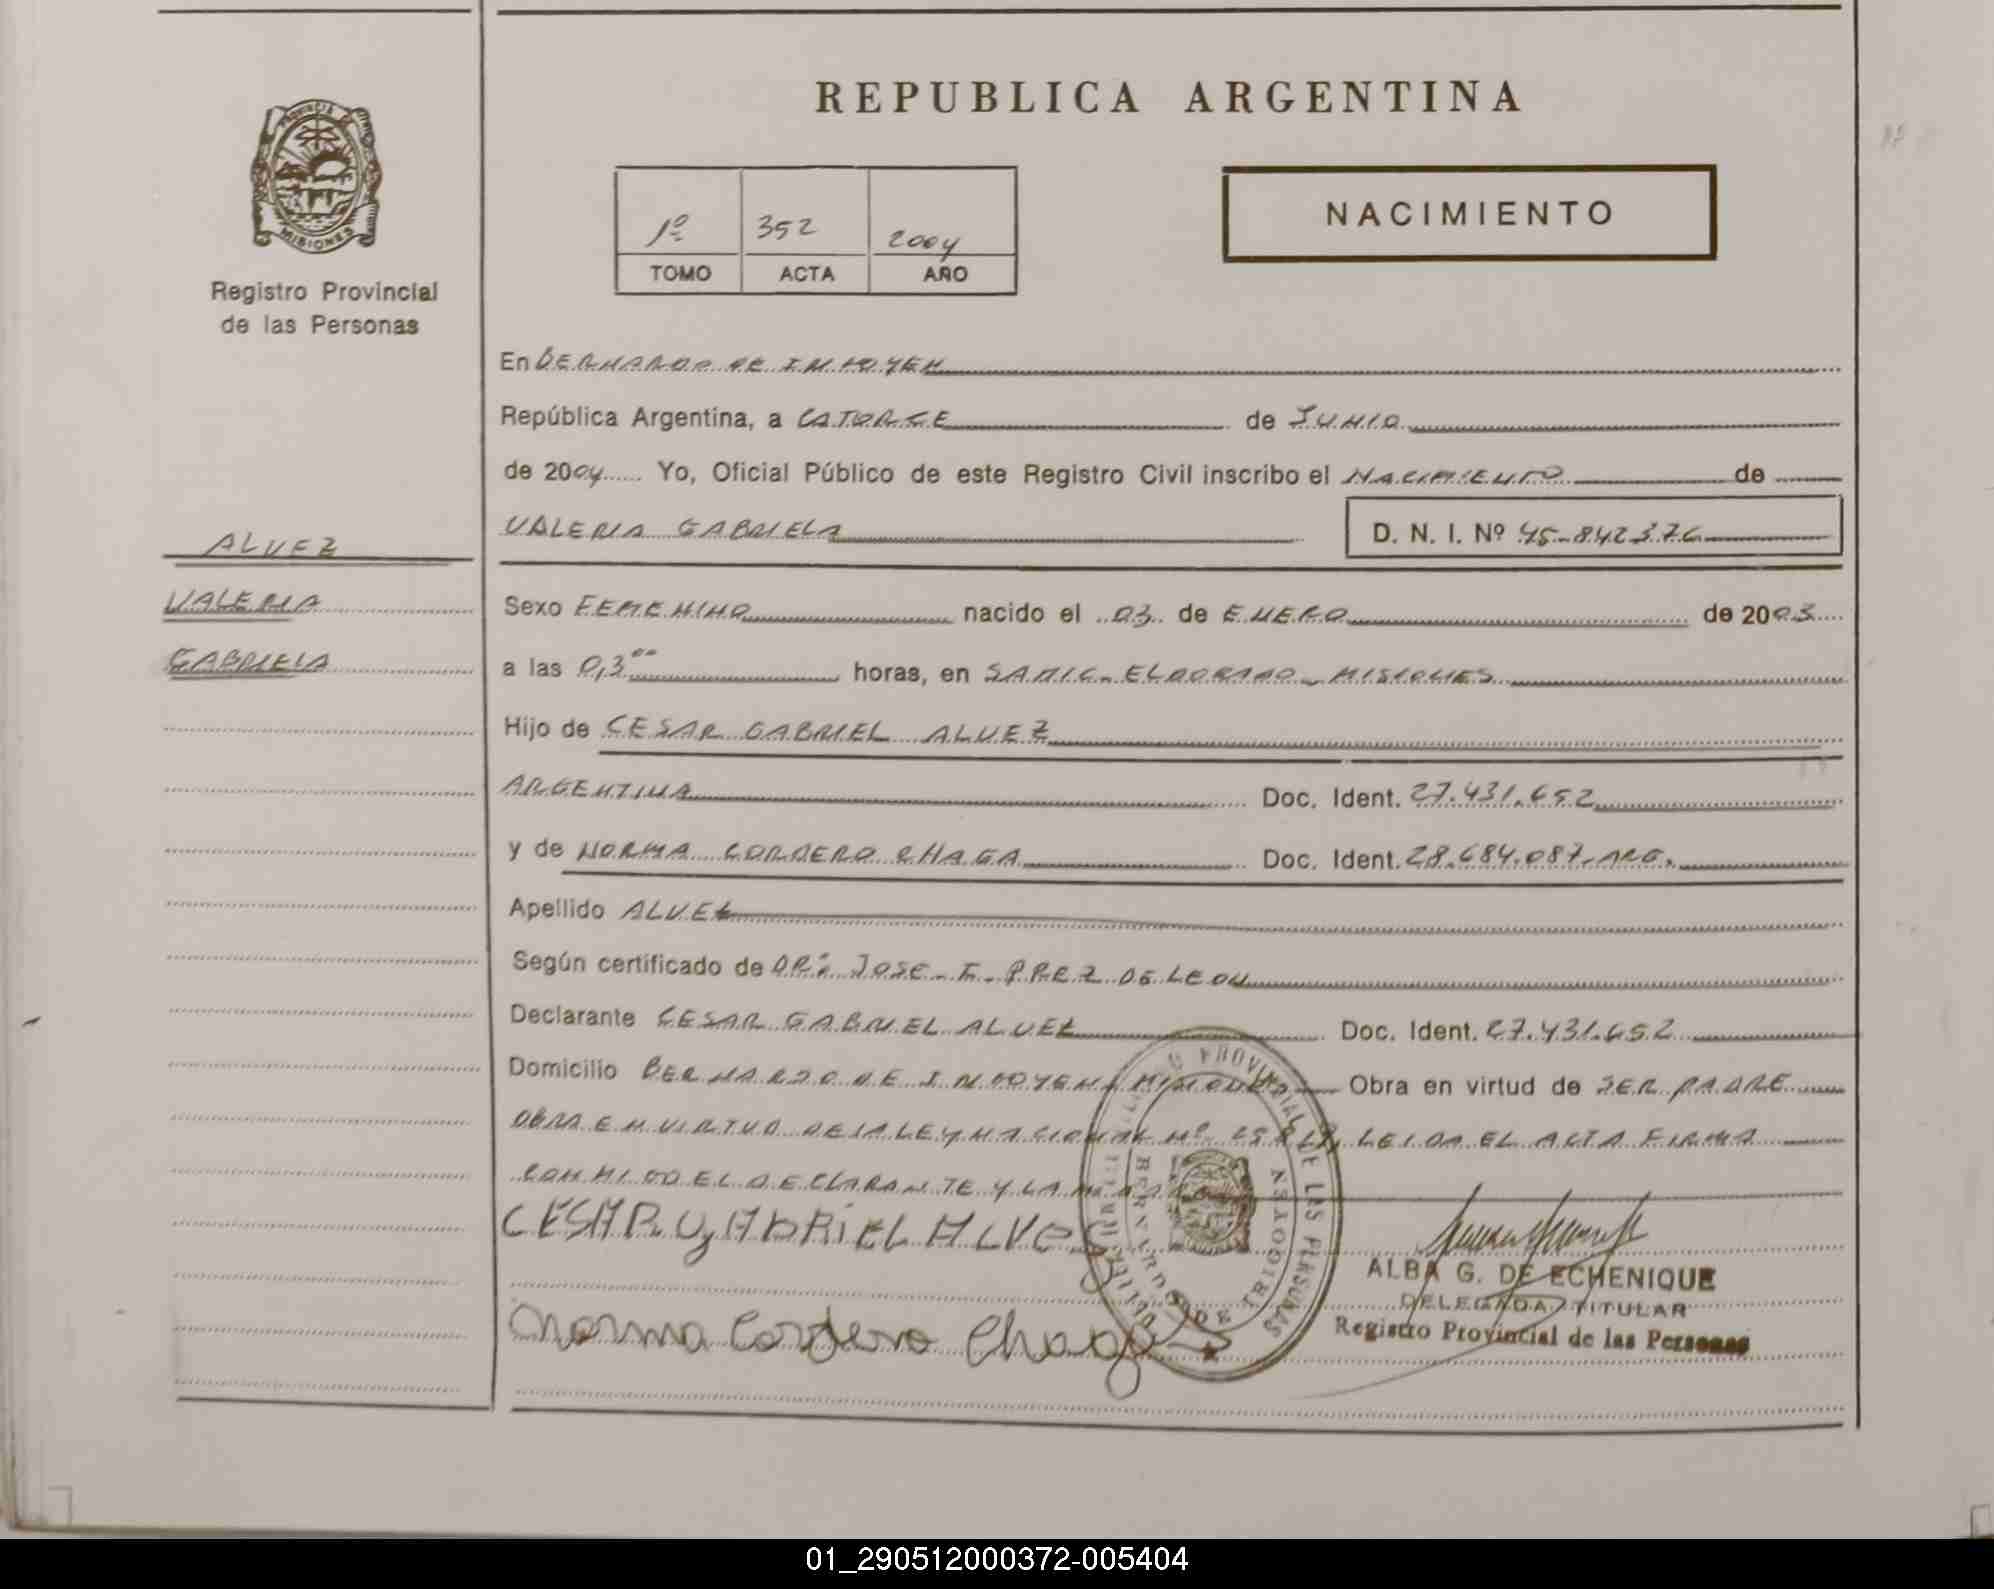 REPUBLICA ARGENTINA
PROVINCIA DE
MISIONES
Registro Provincial
de las Personas
1º 352 2004
TOMO ACTA AÑO
NACIMIENTO
En BERNARDO DE IRIGOYEN
República Argentina, a CATORCE de JUNIO
de 2004 Yo, Oficial Público de este Registro Civil inscribo el NACIMIENTO de
VALERIA GABRIELA D. N. I. Nº 45-842376
ALVEZ
VALERIA
GABRIELA
Sexo FEMENINO nacido el 03 de ENERO de 2003
a las 0,3 00 horas, en SAMIC. ELDORADO - MISIONES
Hijo de CESAR GABRIEL ALVEZ
ARGENTINA Doc. Ident. 27.431.652
y de NORMA CORDERO CHAGA Doc. Ident. 28.684.087-ARG.
Apellido ALVEZ
Según certificado de DR. JOSE F. PREZ DE LEON
Declarante CESAR GABRIEL ALVEZ Doc. Ident. 27.431.652
Domicilio BERNARDO DE IRIGOYEN MISIONES Obra en virtud de SER PADRE
OBRA EN VIRTUD DE LA LEY NACIONAL Nº LEIDA EL ACTA FIRMA
CONMIGO EL DECLARANTE Y LA
CESAR GABRIEL ALVEZ
Norma Cordero Chaga
PROVINCIAL DE LAS PERSONAS
BERNARDO DE IRIGOYEN
ALBA G. DE ECHENIQUE
DELEGADA TITULAR
Registro Provincial de las Personas
01_290512000372-005404